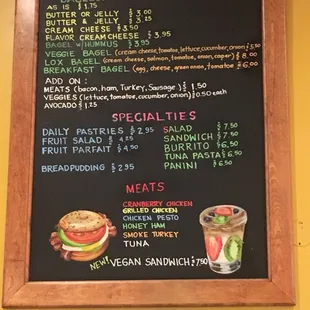 AS IS $ 1.75
BUTTER OR JELLY $ 3
BUTTER & JELLY $ 3
CREAM CHEESE $ 3.50
FLAVOR CREAM CHEESE $ 3.95
BAGEL W/HUMMUS $ 3.95
VEGGIE BAGEL (cream cheese, tomato, lettuce, cucumber, onion) $ 5.50
LOX BAGEL $ (cream cheese, salmon, tomato, onion, caper) $ 8.00
BREAKFAST BAGEL (egg, cheese, green onion, tomato) $ 6.00
ADD ON:
MEATS (bacon, ham, Turkey, Sausage) $ 1.50
VEGGIES (lettuce, tomatoe, cucumber, onion) $ 0.50 each
AVOCADO $ 1.25
SPECIALTIES
DAILY PASTRIES $ 2.95
FRUIT SALAD $ 4.25
FRUIT PARFAIT $ 4.50
BREADPUDDING $ 2.95
SALAD $ 7.50
SANDWICH $ 7.50
BURRITO $ 6.50
TUNA PASTA $ 6.50
PANINI $ 7.50
MEATS
CRANBERRY CHICKEN
GRILLED CHICKEN
CHICKEN PESTO
HONEY HAM
SMOKE TURKEY
TUNA
NEW! VEGAN SANDWICH $ 7.50